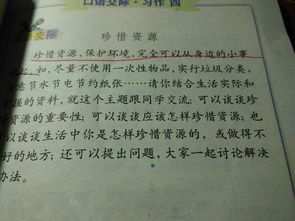 口语交际·习作 四
交际
珍惜资源
珍惜资源、保护环境,完全可以从身边的小事
起。如,尽量不使用一次性物品,实行垃圾分类,
意节水节电节约纸张……请你结合生活实际和
的资料,就这个主题跟同学交流:可以谈谈珍
资源的重要性;可以谈谈应该怎样珍惜资源;也
以谈谈生活中你是怎样珍惜资源的,或做得不
好的地方;还可以提出问题,大家一起讨论解决
办法。